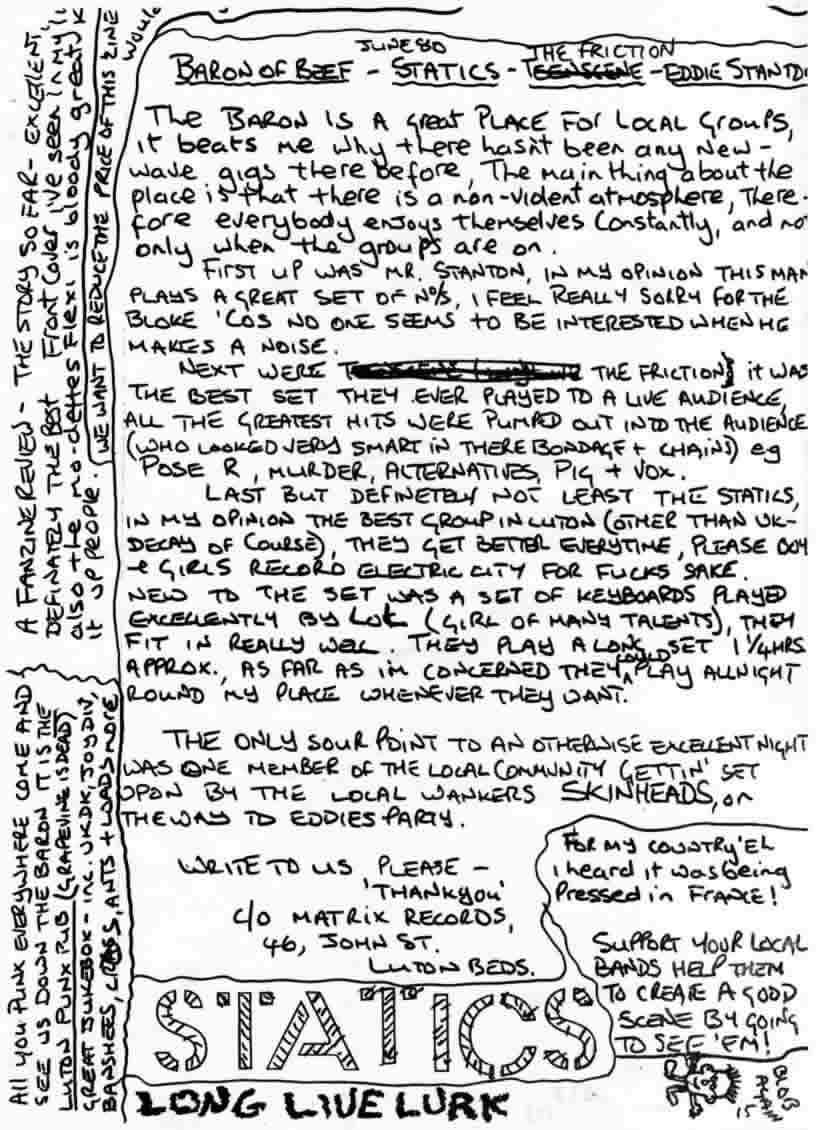 would
JUNE 80
BARON OF BEEF - STATICS - THE FRICTION - EDDIE STANTO
The BARON IS A great PLACE FOR LOCAL Groups,
it beats me why there hasn't been any New-
wave gigs there before, The main thing about the
place is that there is a non-violent atmosphere, There-
fore everybody enjoys themselves Constantly, and no
only when the groups are on.
FIRST UP WAS MR. STANTON, IN MY OPINION THIS MAN
PLAYS A GREAT SET OF N°/S, I FEEL REALLY SORRY FOR THE
BLOKE 'COS NO ONE SEEMS TO BE INTERESTED WHEN HE
MAKES A NOISE.
NEXT WERE THE FRICTION} it WAS
THE BEST SET THEY EVER PLAYED TO A LIVE AUDIENCE,
ALL THE GREATEST HITS WERE PUMPED OUT INTO THE AUDIENCE
(WHO LOOKED VERY SMART IN THERE BONDAGE + CHAINS) eg
POSE R, MURDER, ALTERNATIVES, PIG + VOX.
LAST BUT DEFINETELY NOT LEAST THE STATICS,
IN MY OPINION THE BEST GROUP IN LUTON (OTHER THAN UK-
DECAY OF COURSE), THEY GET BETTER EVERYTIME, PLEASE BOY
+ GIRLS RECORD ELECTRIC CITY FOR FUCKS SAKE.
NEW TO THE SET WAS A SET OF KEYBOARDS PLAYED
EXCELLENTLY BY LOL (GIRL OF MANY TALENTS), THEY
FIT IN REALLY WELL. THEY PLAY A LONG SET 1 1/4 HRS
APPROX., AS FAR AS I'M CONCERNED THEY COULD PLAY ALLNIGHT
ROUND MY PLACE WHENEVER THEY WANT.
THE ONLY SOUR POINT TO AN OTHERWISE EXCELLENT NIGHT
WAS ONE MEMBER OF THE LOCAL COMMUNITY GETTIN' SET
UPON BY THE LOCAL WANKERS SKINHEADS, on
THE WAY TO EDDIES PARTY.
WRITE TO US PLEASE -
'THANKyou'
C/O MATRIX RECORDS,
46, JOHN ST.
LUTON BEDS.
FOR MY COUNTRY 'EL
i heard it was being
Pressed in FRANCE!
SUPPORT YOUR LOCAL
BANDS HELP THEM
TO CREATE A GOOD
SCENE BY GOING
TO SEE 'EM!
STATICS
LONG LIVE LURK
BLOB
AGAIN
15
A FANZINE REVIEW - THE STORY SO FAR - EXCELLENT,
DEFINATELY THE Best Front Cover I've seen in my
also the mo-dettes Flexi is bloody great, K
it up people.
WE WANT TO REDUCE THE PRICE OF THIS ZINE
All you PUNX EVERYWHERE COME AND
SEE US DOWN THE BARON IT IS THE
LUTON PUNX PUB (GRAPEVINE IS DEAD)
GREAT JUKEBOX - INC. UK.DK, JOY DIV,
BANSHEES, CRASS, ANTS + LOADS MORE